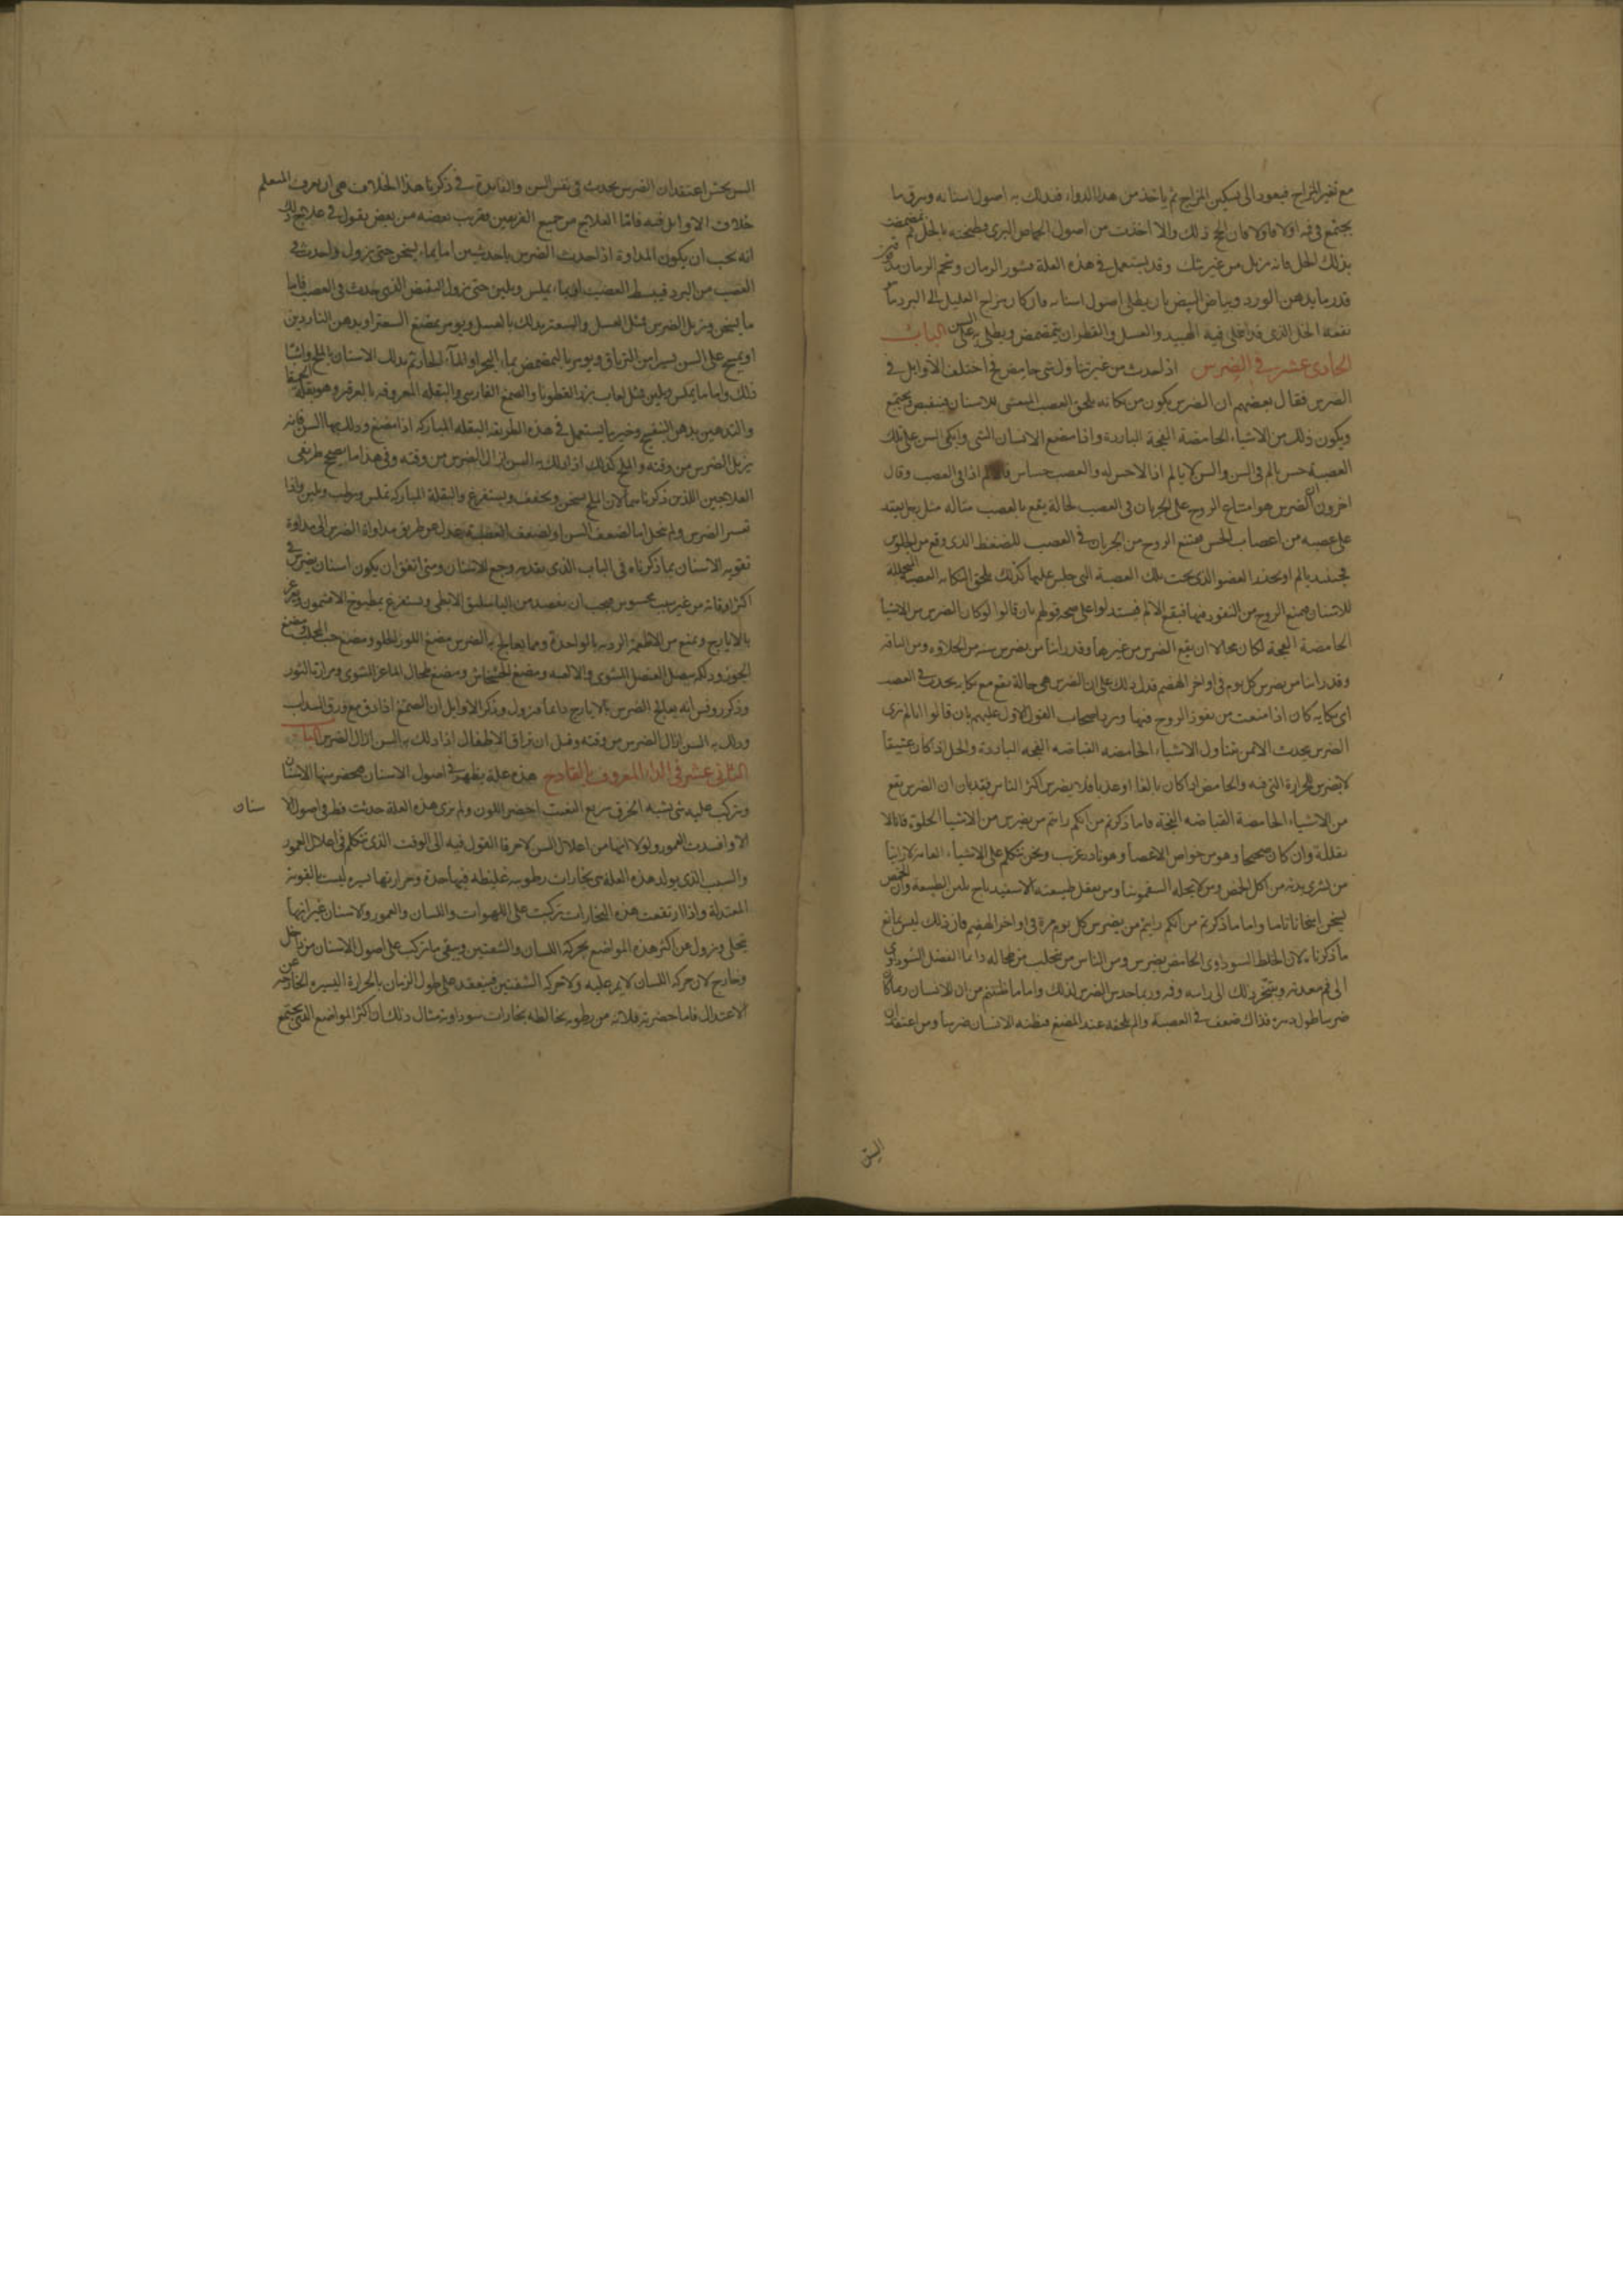 مع تغير المزاج فيعود الى تسكين المزاج ثم ياخذ من هذا الدواء فيدلك به اصول اسنانه ويبزق ما
يجتمع في فيه اولا فاولا فان انجح ذلك والا اخذت من اصول الحماض البري وطبخته بالخل ثم تمضمضت
بذلك الخل فانه يزيل من غير شك وقد يستعمل في هذه العلة قشور الرمان وشحم الرمان
قدر ما بدهن الورد وبياض البيض بان يطلى اصول اسنانه فان كان مزاج العليل الى البرد ما
نفعه الخل الذي قد اغلى فيه والعسل والقطران يتمضمض ويطلى به على السن الباب
الحادي عشر في الضرس اذا حدث من غير تناول شي حامض قد اختلف الاوايل في
الضرس فقال بعضهم ان الضرس يكون من نكاية تلحق العصب الاسنان فينقبض ويجتمع
ويكون ذلك من الاشياء الحامضة الفجة الباردة واذا مضغ الانسان الشي واتكى السن على تلك
العصبة حس بالم في السن والسن لا يالم اذ لا حس له والعصب حساس اذا في العصب وقال
اخرون ان الضرس هو امتناع الروح على الجريان في العصب لحالة يقع بالعصب مثاله مثل رجل
على عصبه من اعصاب الحس فيمتنع الروح من الجريان في العصب للضغط الذي وقع من الجلوس
فحينئذ يالم او يخدر العضو الذي تحت تلك العصبة التي جلس عليها كذلك تلحق النكاية العصبة
للاسنان فيمنع الروح من النفوذ فيها فيقع الالم فيستدلوا على صحة قولهم بان قالوا لو كان الضرس من الاشياء
الحامضة الفجة لكان محالا ان يقع الضرس من غيرها وقد راينا من يضرس سنه من الحلاوة ومن
وقد راينا من يضرس كل يوم في اواخر الهضم فدل ذلك على ان الضرس هي حالة تقع مع نكاية يحدث في العصب
اي نكاية كان اذا منعت من نفوذ الروح فيها ويرد اصحاب القول الاول عليهم بان قالوا انا لم نرى
الضرس يحدث الا من تناول الاشياء الحامضة القباضة الفجة الباردة والخل اذا كان عتيقا
لا يضرس للحرارة التي فيه والحامض اذا كان بالغا او عذبا فلا يضرس اكثر الناس فقد بان ان الضرس يقع
من الاشياء الحامضة القباضة الفجة فاما ما ذكرتم من انكم رايتم من يضرس من الاشيا الحلوة فانا لا
وان كان صحيحا وهو من خواص الاعضا وهو نادر غريب ونحن نتكلم على الاشياء العامة لا
من يشرى بدنه من اكل الحمض ومن لا يحله السقمونيا ومن يعقل طبيعته الاسفيدباج يلين الطبيعة وان
يسخن اسخانا تاما واما ما ذكرتم من انكم رايتم من يضرس كل يوم مرة في اواخر الهضم فان ذلك ليس بمانع
ما ذكرناه لان الخلط السوداوي الحامض يضرس ومن الناس من يتحلب من طحاله دايما الفضل السوداوي
الى فم معدته ويتبخر ذلك الى راسه وفيه وربما حدث الضرس لذلك واما ما ظننتم من ان للانسان ربما كان
ضرسا طول دهره فذاك ضعف في العصبة والم يلحقه عند المضغ فيظنه الانسان ضرسا ومن اعتقد ان
السن
السن يحس اعتقد ان الضرس يحدث في نفس السن والفايدة في ذكرنا هذا الخلاف هي ان يعرف المتعلم
خلاف الاوايل فيه فاما العلاج من جميع الفريقين فقريب بعضه من بعض يقول في علاج ذلك
انه يجب ان يكون المداواة اذا حدث الضرس باحد شيين اما بما يسخن حتى يزول ما حدث في
العصب من البرد فيبسط العصب او بما يملس ويلين حتى يزول القبض الذي حدث في العصب فاما
ما يسخن ويزيل الضرس مثل العسل والسعتر يدلك بالعسل ويومر بمضغ السعتر او بدهن الناردين
او يمسح على السن يسيرا من الترياق ويومر بالتمضمض بماء البحر او الماء الحار ثم يدلك الاسنان بالملح واشباه
ذلك واما ما يملس ويلين مثل لعاب بزر القطونا والصمغ الفارسي والبقلة المعروفة بالفرفير وهو بقلة الحمقا
والتدهين بدهن البنفسج وخير ما يستعمل في هذه الطريقة البقلة المباركة اذا مضغ ودلك بها السن فانه
يزيل الضرس من وقته والملح كذلك اذا دلك به السن ازال الضرس من وقته وفي هذا ما يصحح طريقي
العلاجين اللذين ذكرناهما لان الملح يسخن ويجفف ويستفرغ والبقلة المباركة تملس وترطب وتلين واذا
تعسر الضرس ولم ينحل اما لضعف السن او لضعف العصبة عدل عن طريق مداواة الضرس الى مداواة
تقوية الاسنان بما ذكرناه في الباب الذي تقدم وجع الاسنان ومتى اتفق ان يكون اسنان يضرس في
اكثر اوقاته من غير سبب محسوس فيجب ان يفصد من الباسليق الابطي ويستفرغ بمطبوخ الافتيمون
بالايارج ويمنع من الاطعمة الردية بالواحدة ومما يعالج به الضرس مضغ اللوز الحلو ومضغ حب المحلب ومضغ
الجوز ودلكه ببصل العنصل المشوي والالعبة ومضغ الخشخاش ومضغ طحال الماعز المشوي ومرارة الثور
وذكر روفس انه يعالج الضرس بالايارج دايما فيزول وذكر الاوايل ان الصمغ اذا دق مع ورق السداب
ودلك به السن ازال الضرس من وقته وقيل ان بزاق الاطفال اذا دلك به السن ازال الضرس الباب
الثاني عشر في الداء المعروف بالقادح هذه علة يظهر في اصول الاسنان فيخضر منها الاسنان
ويتركب عليه شي يشبه الخزف سريع التفتت اخضر اللون ولم نرى هذه العلة حدثت قط في اصول الاسنان
الا وافسدت العمور ولولا انها من اعلال السن لاخرنا القول فيه الى الوقت الذي نتكلم في اعلال العمور
والسبب الذي يولد هذه العلة هي بخارات رطوبية غليظة فيها حدة وحرارتها يسيرة ليست بالقوية
المعتدلة واذا ارتفعت هذه البخارات تركبت على اللهوات واللسان والعمور والاسنان غير انها
يتحلل ويزول عن اكثر هذه المواضع بحركة اللسان والشفتين ويبقى ما تركب على اصول الاسنان من داخل
وخارج لان حركة اللسان لا يمر عليه ولا حركة الشفتين فينعقد على طول الزمان بالحرارة اليسيرة الخارجة عن
الاعتدال فاما خضرته فلانه من رطوبة يخالطه بخارات سوداوية مثال ذلك ان اكثر المواضع التي يجتمع